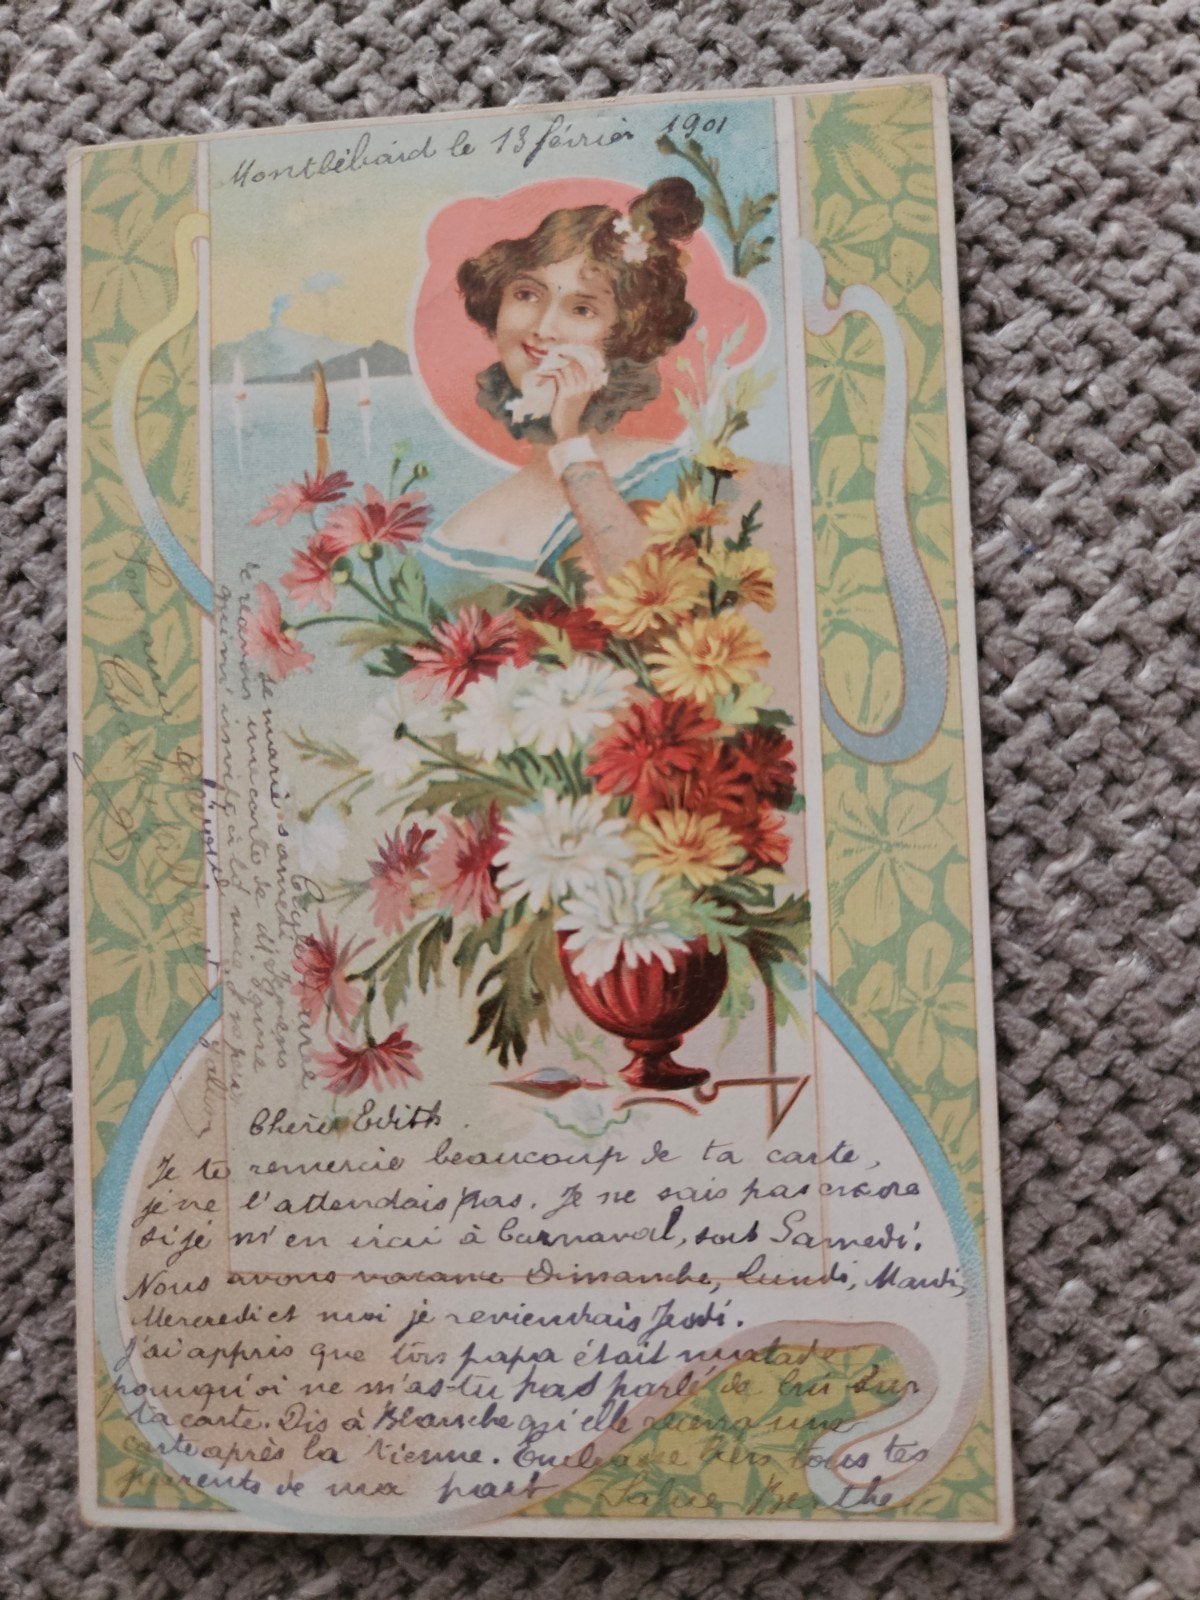 Montbéliard le 13 février 1901
Chère Edith
Je te remercie beaucoup de ta carte,
je ne l'attendais pas. Je ne sais pas encore
si je m'en irai à Carnaval, soit Samedi.
Nous avons vacance Dimanche, Lundi, Mardi,
Mercredi et moi je reviendrais Jeudi.
J'ai appris que ton papa était malade
pourquoi ne m'as-tu pas parlé de lui sur
ta carte. Dis à Blanche qu'elle recevra une
carte après la tienne. Embrasse bien tous tes
parents de ma part
Berthe
se marie samedi
reçevais une carte de
qui m'invite à la
Ton amie